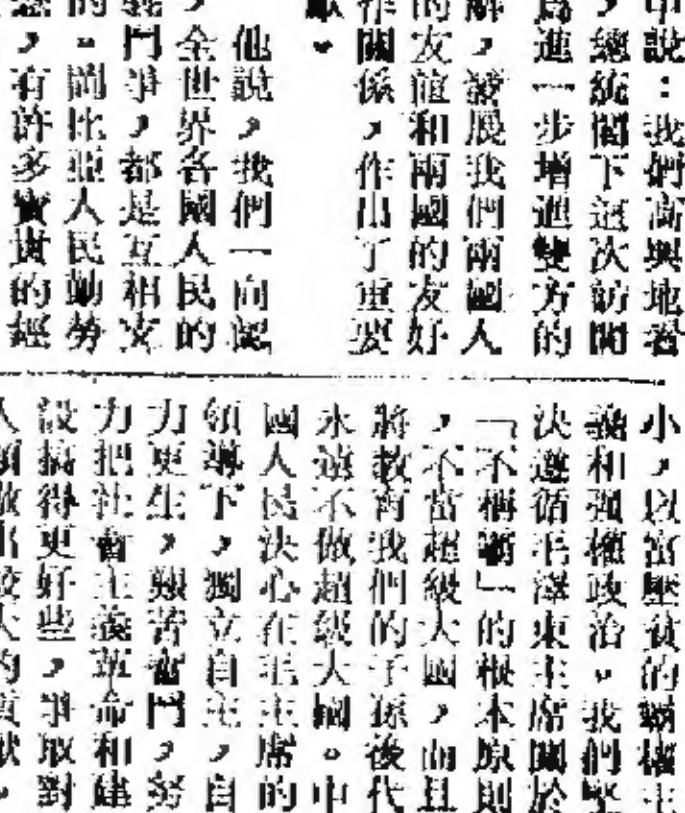 中說：我們高興地看
，總統閣下這次訪問
爲進一步增進雙方的
解，發展我們兩國人
的友誼和兩國的友好
作關係，作出了重要
獻。
他說，我們一向認
，全世界各國人民的
鬥爭，都是互相支
的。岡比亞人民勤勞
，有許多寶貴的經
小，以富壓貧的霸權主
義和強權政治。我們堅
決遵循毛澤東主席關於
「不稱霸」的根本原則
，不當超級大國，而且
將教育我們的子孫後代
永遠不做超級大國。中
國人民決心在毛主席的
領導下，獨立自主，自
力更生，艱苦奮鬥，努
力把社會主義革命和建
設搞得更好些，爭取對
人類做